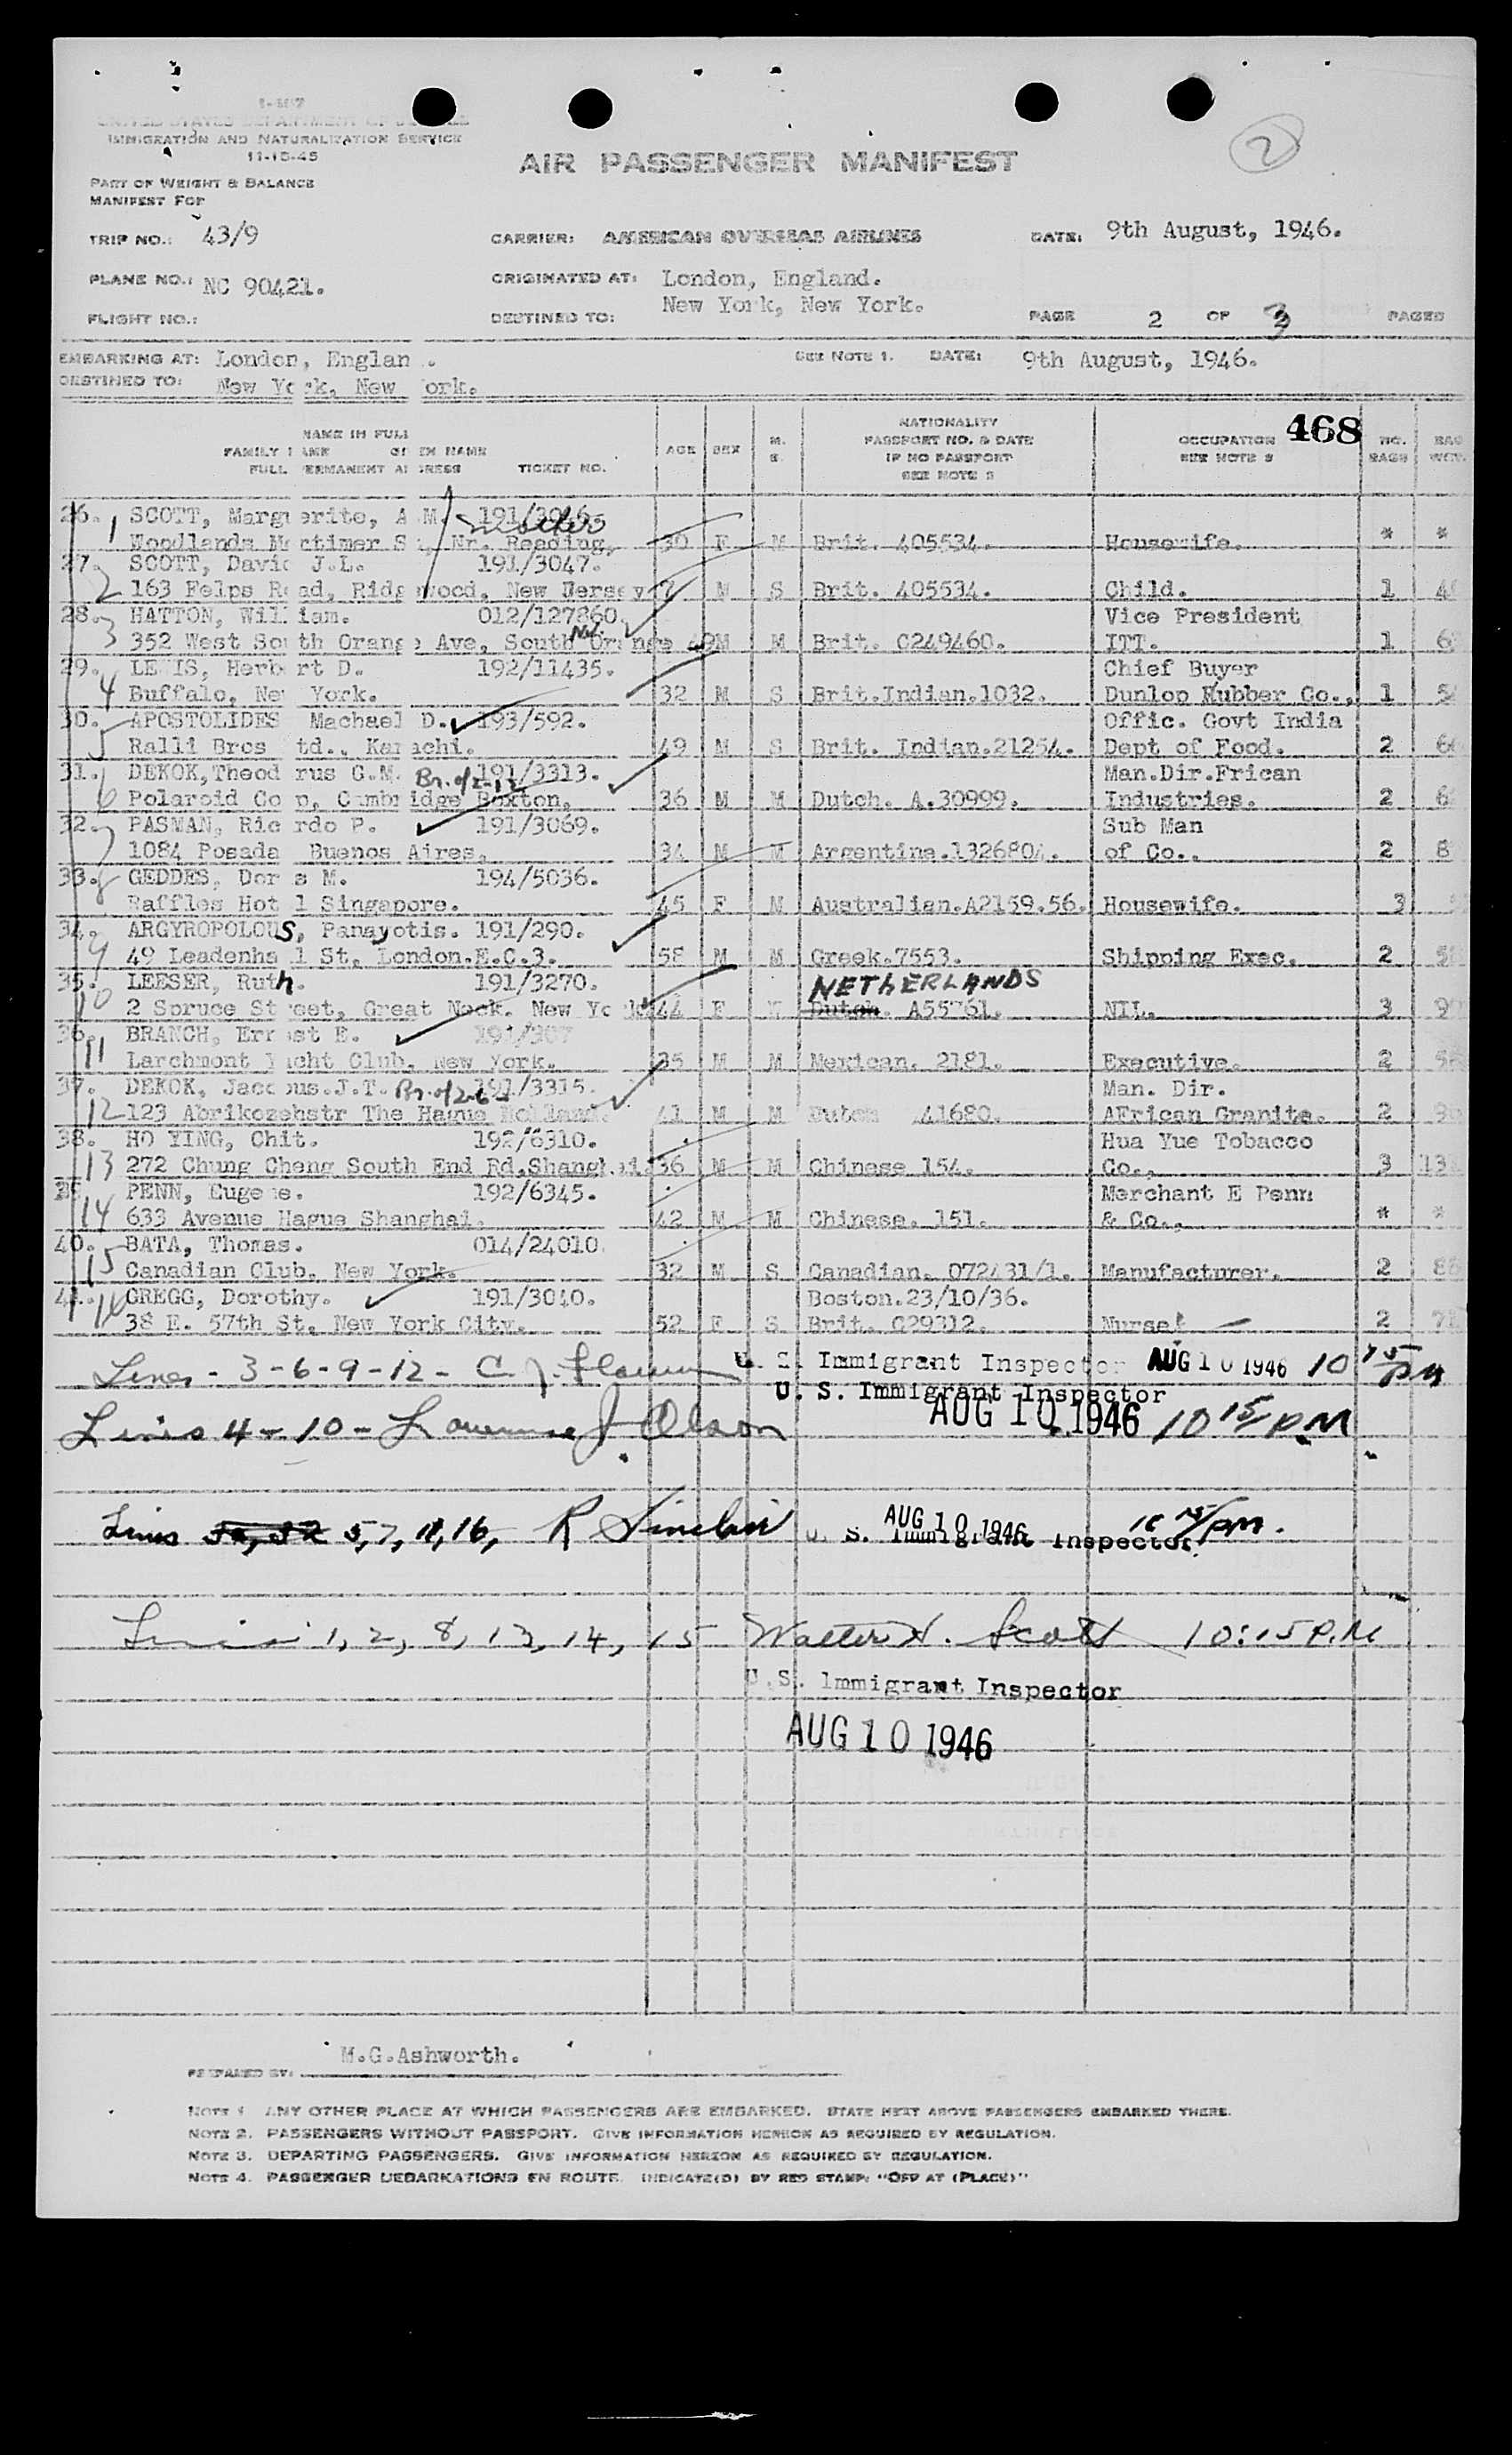 I-407
UNITED STATES DEPARTMENT OF JUSTICE
IMMIGRATION AND NATURALIZATION SERVICE
11-15-45
AIR PASSENGER MANIFEST
2
PART OF WEIGHT & BALANCE
MANIFEST FOR
TRIP NO.: 43/9 CARRIER: AMERICAN OVERSEAS AIRLINES DATE: 9th August, 1946.
PLANE NO.: NC 90421. ORIGINATED AT: London, England.
FLIGHT NO.: DESTINED TO: New York, New York. PAGE 2 OF 3 PAGES
EMBARKING AT: London, Englan . SEE NOTE 1. DATE: 9th August, 1946.
DESTINED TO: New York, New ork.
468
NAME IN FULL
FAMILY NAME GIVEN NAME
FULL PERMANENT ADDRESS TICKET NO.
AGE SEX M. S. NATIONALITY PASSPORT NO. & DATE IF NO PASSPORT SEE NOTE 2 OCCUPATION SEE NOTE 3 NO. BAGS BAG WGT.
26. 1 SCOTT, Marguerite, A M. 191/3046. mother
Woodlands Mortimer St, Nr. Reading, 30 F M Brit. 405534. Housewife. * *
27. 2 SCOTT, David J.L. 191/3047.
163 Felps Road, Ridgewood, New Jersey 7 M S Brit. 405534. Child. 1
28. 3 HATTON, William. 012/127860. Vice President
352 West South Orange Ave, South Orange NJ 49 M M Brit. C249460. ITT. 1
29. 4 LEWIS, Herbert D. 192/11435. Chief Buyer
Buffalo, New York. 32 M S Brit.Indian.1032. Dunlop Rubber Co., 1
30. 5 APOSTOLIDES Machael D. 193/592. Offic. Govt India
Ralli Bros Ltd., Karachi. 49 M S Brit. Indian.21254. Dept of Food. 2
31. 6 DEKOK,Theodorus C.M. 191/3313. Man.Dir.Frican
Polaroid Corp, Cambridge Boxton. 36 M M Dutch. A.30999. Industries. 2
32. 7 PASMAN, Ricardo P. 191/3069. Sub Man
1084 Posada Buenos Aires. 34 M M Argentine.132680 . of Co.. 2
33. 8 GEDDES, Doris M. 194/5036.
Raffles Hotel Singapore. 45 F M Australian.A2159.56. Housewife. 3
34. 9 ARGYROPOLOUS, Panayotis. 191/290.
49 Leadenhall St, London.E.C.3. 58 M M Greek.7553. Shipping Exec. 2
35. 10 LEESER, Ruth. 191/3270. NETHERLANDS
2 Spruce Street, Great Neck. New York 44 F M Dutch. A55 61. NIL. 3
36. 11 BRANCH, Ernest E. 191/307
Larchmont Yacht Club. New York. 35 M M Mexican. 2181. Executive. 2
37. 12 DEKOK, Jacobus.J.T. 191/3315. Man. Dir.
123 Abrikozehstr The Hague Holland. 41 M M Dutch A1680. AFrican Granite. 2
38. 13 HO YING, Chit. 192/6310. Hua Yue Tobacco
272 Chung Cheng South End Rd.Shanghai. 36 M M Chinese 154. Co., 3
39. 14 PENN, Eugene. 192/6345. Merchant E Penn
633 Avenue Hague Shanghai. 42 M M Chinese. 151. & Co., * *
40. 15 BATA, Thomas. 014/24010.
Canadian Club. New York. 32 M S Canadian. 072431/1. Manufacturer. 2
41. 16 GREGG, Dorothy. 191/3040. Boston.23/10/36.
38 E. 57th St, New York City. 52 F S Brit. C29312. Nurse. 2
Lines - 3-6-9-12- C. J. U. S. Immigrant Inspector AUG 10 1946 10 15 PM
U. S. Immigrant Inspector
Lines 4 - 10 - Lawrence J. Olson AUG 10 1946 10 15 PM
Lines 5, 7, 11, 16, R Sinclair AUG 10 1946 10 15 pm.
U. S. Immigrant Inspector
Lines 1, 2, 8, 13, 14, 15 Walter H. Scott 10:15 P.M
U.S. Immigrant Inspector
AUG 10 1946
M.G.Ashworth.
PREPARED BY:
NOTE 1 ANY OTHER PLACE AT WHICH PASSENGERS ARE EMBARKED. STATE NEXT ABOVE PASSENGERS EMBARKED THERE.
NOTE 2. PASSENGERS WITHOUT PASSPORT. GIVE INFORMATION HEREON AS REQUIRED BY REGULATION.
NOTE 3. DEPARTING PASSENGERS. GIVE INFORMATION HEREON AS REQUIRED BY REGULATION.
NOTE 4. PASSENGER DEBARKATIONS EN ROUTE. INDICATE(D) BY RED STAMP: "OFF AT (PLACE)"